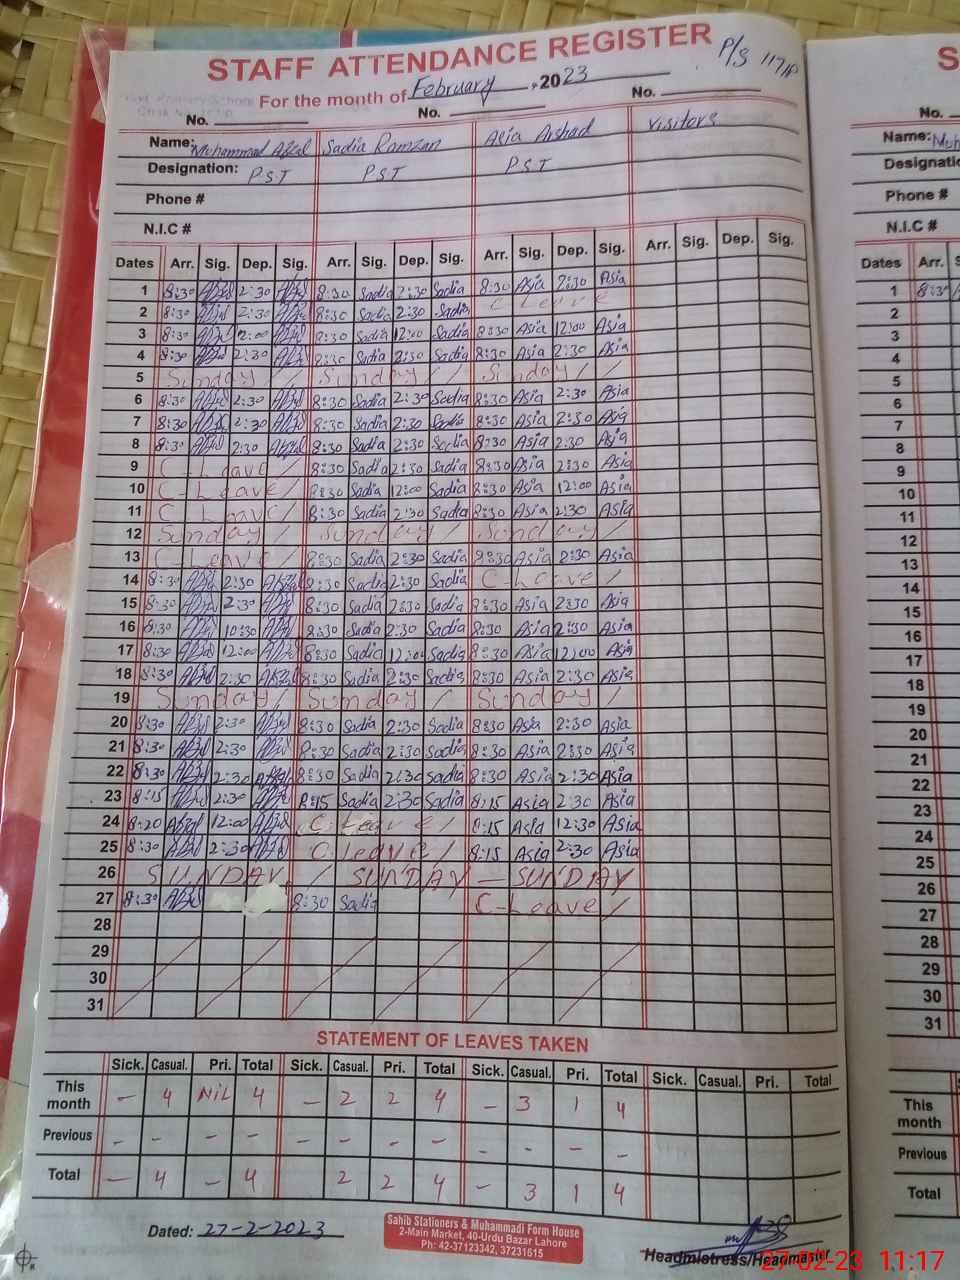 STAFF ATTENDANCE REGISTER
P/S 117/P
For the month of February, 2023
No. No. No.
Name: Muhammad Afzal Sadia Ramzan Asia Arshad Visitors
Designation: PST PST PST
Phone #
N.I.C #
Dates Arr. Sig. Dep. Sig. Arr. Sig. Dep. Sig. Arr. Sig. Dep. Sig. Arr. Sig. Dep. Sig.
1 8:30 Afzal 2:30 Afzal 8:30 Sadia 2:30 Sadia 8:30 Asia 2:30 Asia
2 8:30 Afzal 2:30 Afzal 8:30 Sadia 2:30 Sadia C-Leave
3 8:30 Afzal 12:00 Afzal 8:30 Sadia 12:00 Sadia 8:30 Asia 12:00 Asia
4 8:30 Afzal 2:30 Afzal 8:30 Sadia 2:30 Sadia 8:30 Asia 2:30 Asia
5 Sunday / Sunday / Sunday /
6 8:30 Afzal 2:30 Afzal 8:30 Sadia 2:30 Sadia 8:30 Asia 2:30 Asia
7 8:30 Afzal 2:30 Afzal 8:30 Sadia 2:30 Sadia 8:30 Asia 2:30 Asia
8 8:30 Afzal 2:30 Afzal 8:30 Sadia 2:30 Sadia 8:30 Asia 2:30 Asia
9 C-Leave / 8:30 Sadia 2:30 Sadia 8:30 Asia 2:30 Asia
10 C-Leave / 8:30 Sadia 12:00 Sadia 8:30 Asia 12:00 Asia
11 C Leave / 8:30 Sadia 2:30 Sadia 8:30 Asia 2:30 Asia
12 Sunday / Sunday / Sunday /
13 C-Leave / 8:30 Sadia 2:30 Sadia 8:30 Asia 2:30 Asia
14 8:30 Afzal 2:30 Afzal 8:30 Sadia 2:30 Sadia C-Leave /
15 8:30 Afzal 2:30 Afzal 8:30 Sadia 2:30 Sadia 8:30 Asia 2:30 Asia
16 8:30 Afzal 10:30 Afzal 8:30 Sadia 2:30 Sadia 8:30 Asia 2:30 Asia
17 8:30 Afzal 12:00 Afzal 8:30 Sadia 12:00 Sadia 8:30 Asia 12:00 Asia
18 8:30 Afzal 2:30 Afzal 8:30 Sadia 2:30 Sadia 8:30 Asia 2:30 Asia
19 Sunday / Sunday / Sunday /
20 8:30 Afzal 2:30 Afzal 8:30 Sadia 2:30 Sadia 8:30 Asia 2:30 Asia
21 8:30 Afzal 2:30 Afzal 8:30 Sadia 2:30 Sadia 8:30 Asia 2:30 Asia
22 8:30 Afzal 2:30 Afzal 8:30 Sadia 2:30 Sadia 8:30 Asia 2:30 Asia
23 8:15 Afzal 2:30 Afzal 8:15 Sadia 2:30 Sadia 8:15 Asia 2:30 Asia
24 8:20 Afzal 12:00 Afzal C-Leave / 8:15 Asia 12:30 Asia
25 8:30 Afzal 2:30 Afzal C-Leave / 8:15 Asia 2:30 Asia
26 SUNDAY / SUNDAY — SUNDAY
27 8:30 Afzal 8:30 Sadia C-Leave /
28
29
30
31
STATEMENT OF LEAVES TAKEN
Sick. Casual. Pri. Total Sick. Casual. Pri. Total Sick. Casual. Pri. Total Sick. Casual. Pri. Total
This month - 4 NiL 4 - 2 2 4 - 3 1 4
Previous - - - - - - - - - - - -
Total - 4 - 4 2 2 4 - 3 1 4
Dated: 27-2-2023
Sahib Stationers & Muhammadi Form House
2-Main Market, 40-Urdu Bazar Lahore
Ph: 42-37123342, 37231615
Headmistress/Headmaster
27-02-23 11:17
S
No.
Name: Muh
Designati
Phone #
N.I.C #
Dates Arr. S
1 8:30
2
3
4
5
6
7
8
9
10
11
12
13
14
15
16
17
18
19
20
21
22
23
24
25
26
27
28
29
30
31
This month
Previous
Total